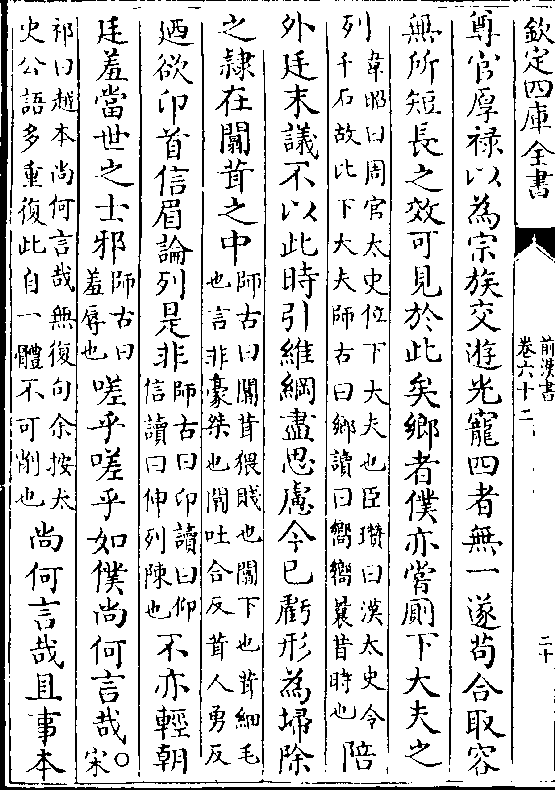 欽定四庫全書
前漢書
卷六十二
二十
尊官厚祿以為宗族交遊光寵四者無一遂苟合取容
無所短長之效可見於此矣鄉者僕亦嘗廁下大夫之
列韋昭曰周官太史位下大夫也臣瓚曰漢太史令
千石故比下大夫師古曰鄉讀曰嚮嚮曩昔時也陪
外廷末議不以此時引維綱盡思慮今已虧形為埽除
之隸在闒茸之中師古曰闒茸猥賤也闒下也茸細毛
也言非豪桀也闒吐合反茸人勇反
迺欲卬首信眉論列是非師古曰卬讀曰仰
信讀曰伸列陳也不亦輕朝
廷羞當世之士邪師古曰
羞辱也嗟乎嗟乎如僕尚何言哉○宋
祁曰越本尚何言哉無復句余按太
史公語多重復此自一體不可削也尚何言哉且事本